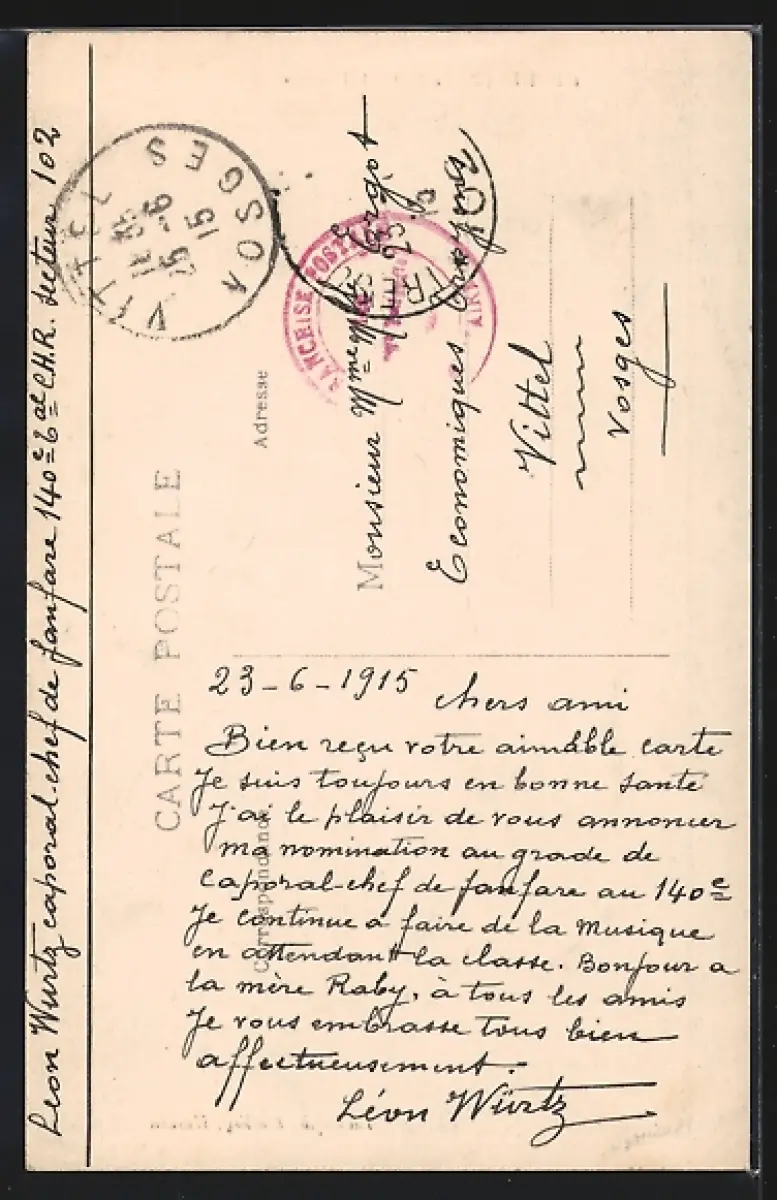 CARTE POSTALE
Correspondance
Adresse
23-6-1915
chers ami
Bien reçu votre aimable carte
Je suis toujours en bonne santé
J'ai le plaisir de vous annoncer
ma nomination au grade de
Caporal-chef de fanfare au 140e
Je continue a faire de la Musique
en attendant la classe. Bonjour a
la mère Raby, à tous les amis
Je vous embrasse tous bien
affectueusement.
Léon Würtz
Monsieur Mme Mlle Ergot
Economiques
Vittel
Vosges
Léon Wurtz caporal-chef de fanfare 140e 6al C.H.R. Secteur 102
VITTEL VOSGES
15
FRANCHISE POSTALE